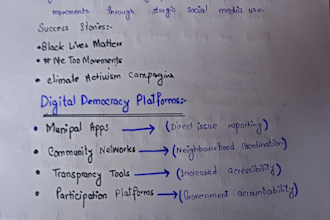 movements through strag's social media use.
Success Stories:-
•Black Lives Matter
•#Me Too Movements
• climate Activism Campagin
Digital Democracy Platforms:-
• Munipal Apps → (Direct issue reporting)
• Community Networks → (Neighbourhood Coordination)
• Transprancy Tools → (Increased accessibility)
• Participation Platforms → (Government accountability)